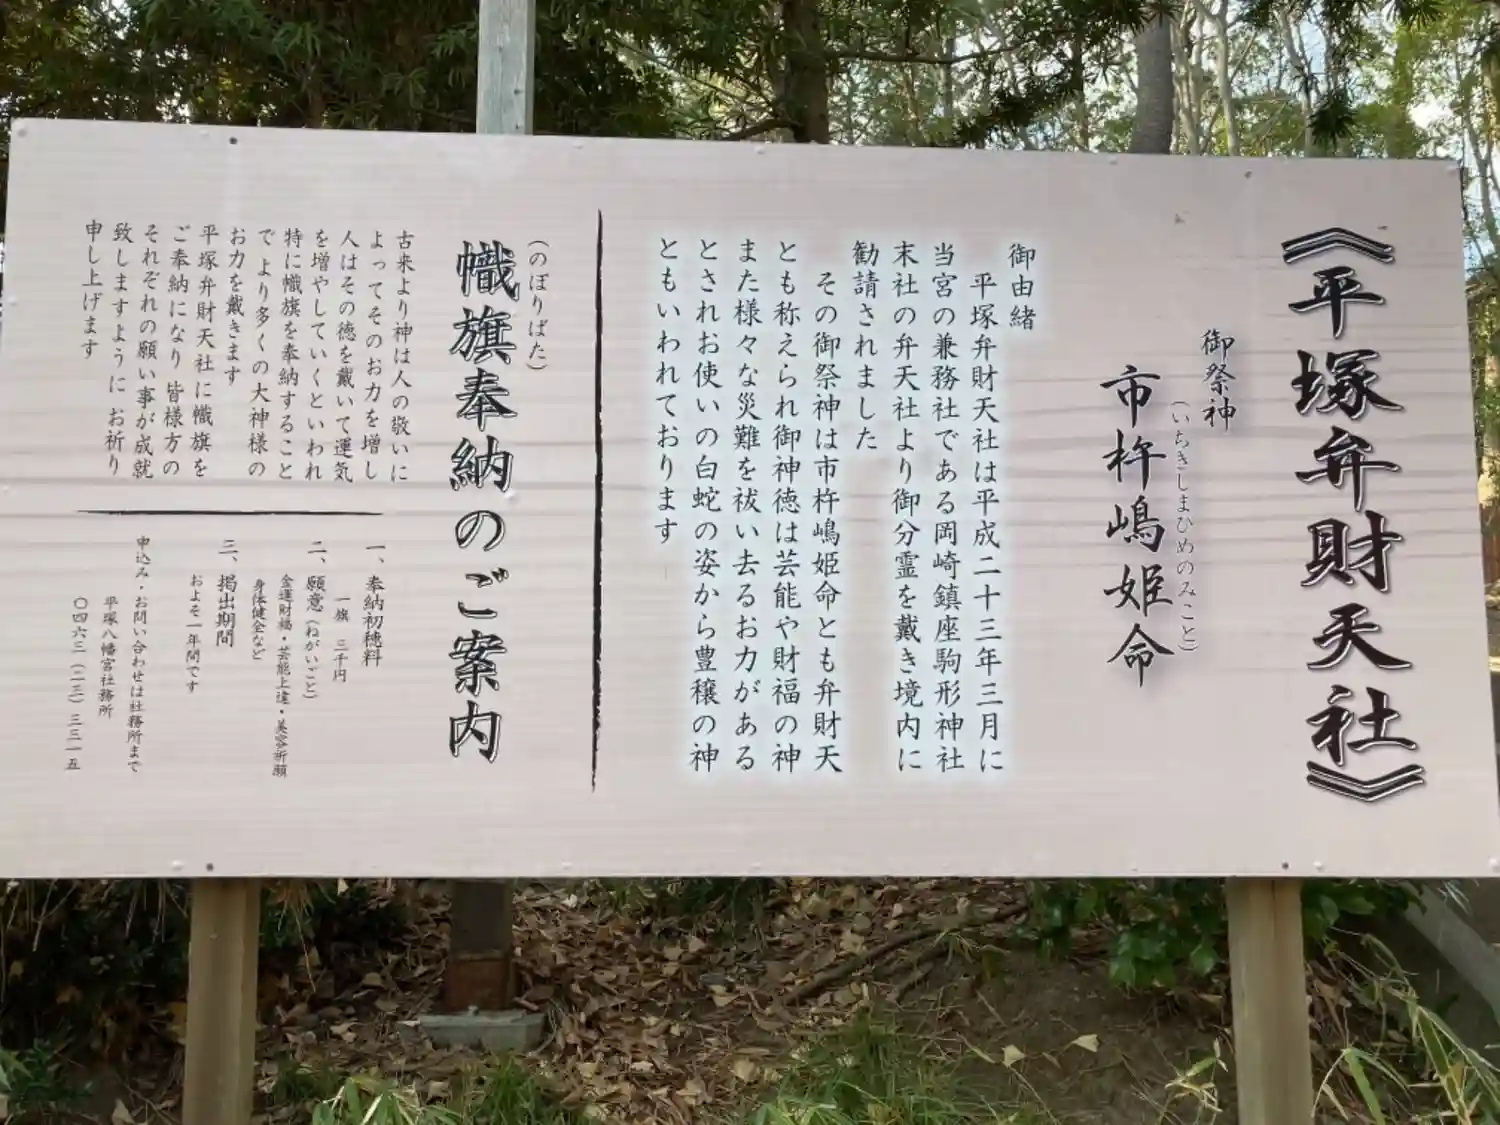 《平塚弁財天社》
御祭神
(いちきしまひめのみこと)
市杵嶋姫命
御由緒
平塚弁財天社は平成二十三年三月に
当宮の兼務社である岡崎鎮座駒形神社
末社の弁天社より御分霊を戴き境内に
勧請されました
その御祭神は市杵嶋姫命とも弁財天
とも称えられ御神徳は芸能や財福の神
また様々な災難を祓い去るお力がある
とされお使いの白蛇の姿から豊穣の神
ともいわれております
(のぼりばた)
幟旗奉納のご案内
古来より神は人の敬いに
よってそのお力を増し
人はその徳を戴いて運気
を増やしていくといわれ
特に幟旗を奉納すること
でより多くの大神様の
お力を戴きます
平塚弁財天社に幟旗を
ご奉納になり 皆様方の
それぞれの願い事が成就
致しますように お祈り
申し上げます
一、奉納初穂料
一旗 三千円
二、願意(ねがいごと)
金運財福・芸能上達・美容祈願
身体健全など
三、掲出期間
およそ一年間です
申込み・お問い合わせは社務所まで
平塚八幡宮社務所
〇四六三(二三)三三一五